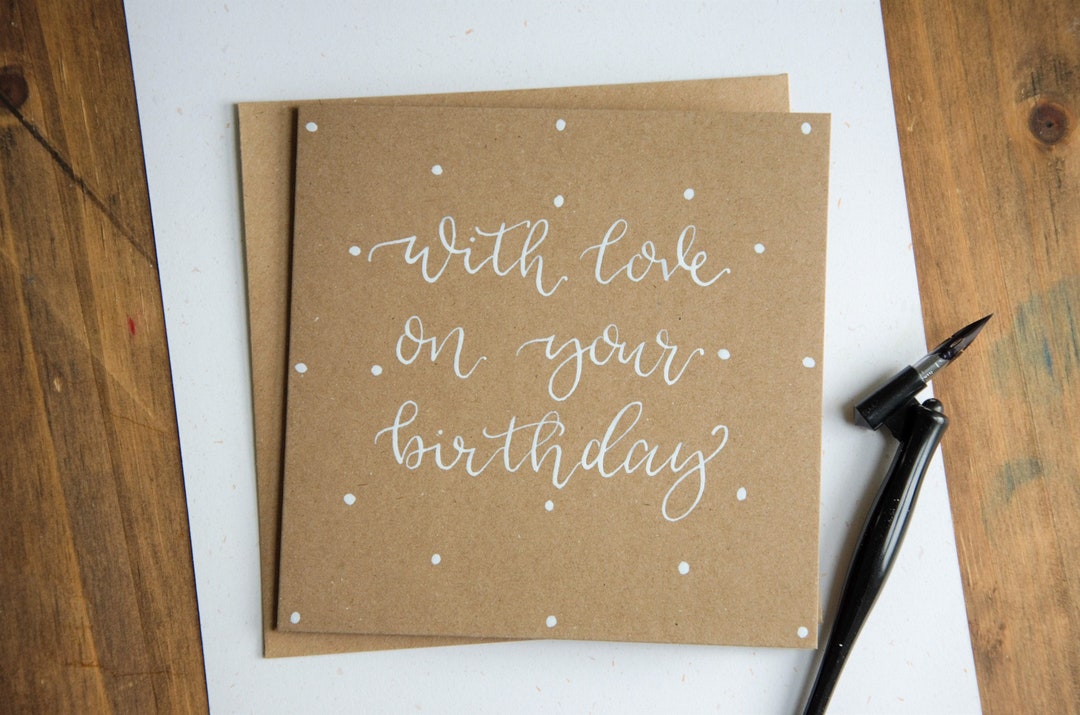 with love
on your
birthday